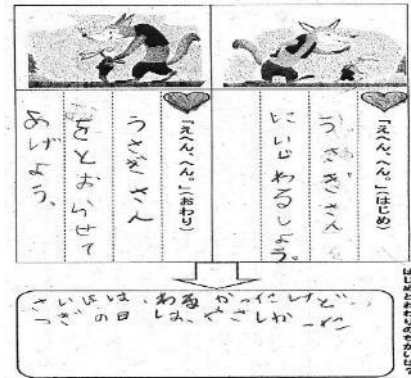 「えへん、へん。」(はじめ)
うさぎさん
にいじわるしよう。
「えへん、へん。」(おわり)
うさぎさん
をとおらせて
あげよう、
はじめとおわりのちがいは?
さいしょは、わるかったけど、
つぎの日は、やさしかった